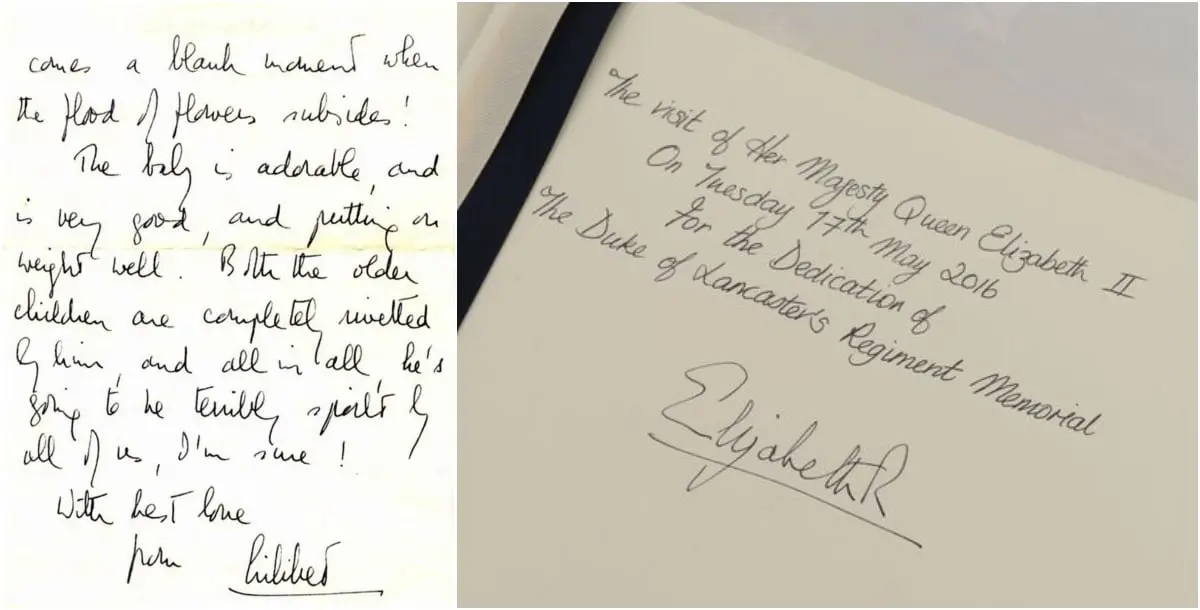 comes a blank moment when
the flood of flowers subsides!
The baby is adorable, and
is very good, and putting on
weight well. Both the older
children are completely rivetted
by him, and all in all, he's
going to be terribly spoilt by
all of us, I'm sure!
With best love
from Lilibet
The visit of Her Majesty Queen Elizabeth II
On Tuesday 17th May 2016
For the Dedication of
The Duke of Lancaster's Regiment Memorial
Elizabeth R